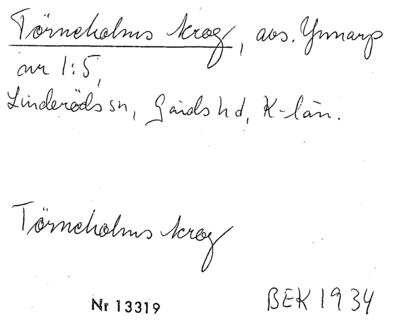 Törneholms krog, avs. Ynnarp
nr 1:5,
Linderöds sn, Gärds hd, K-län.
Törneholms krog
Nr 13319
BEK 1934